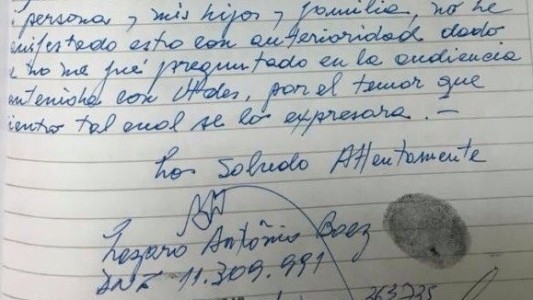 persona, y mis hijos, y familia, no he
nifestado esto con anterioridad dado
no me fué preguntado en la audiencia
antenida con Uds, por el temor que
iento tal cual se los expresara. —
Los Saludo Attentamente
Lazaro Antônio Baez
DNI 11.309.991
263735